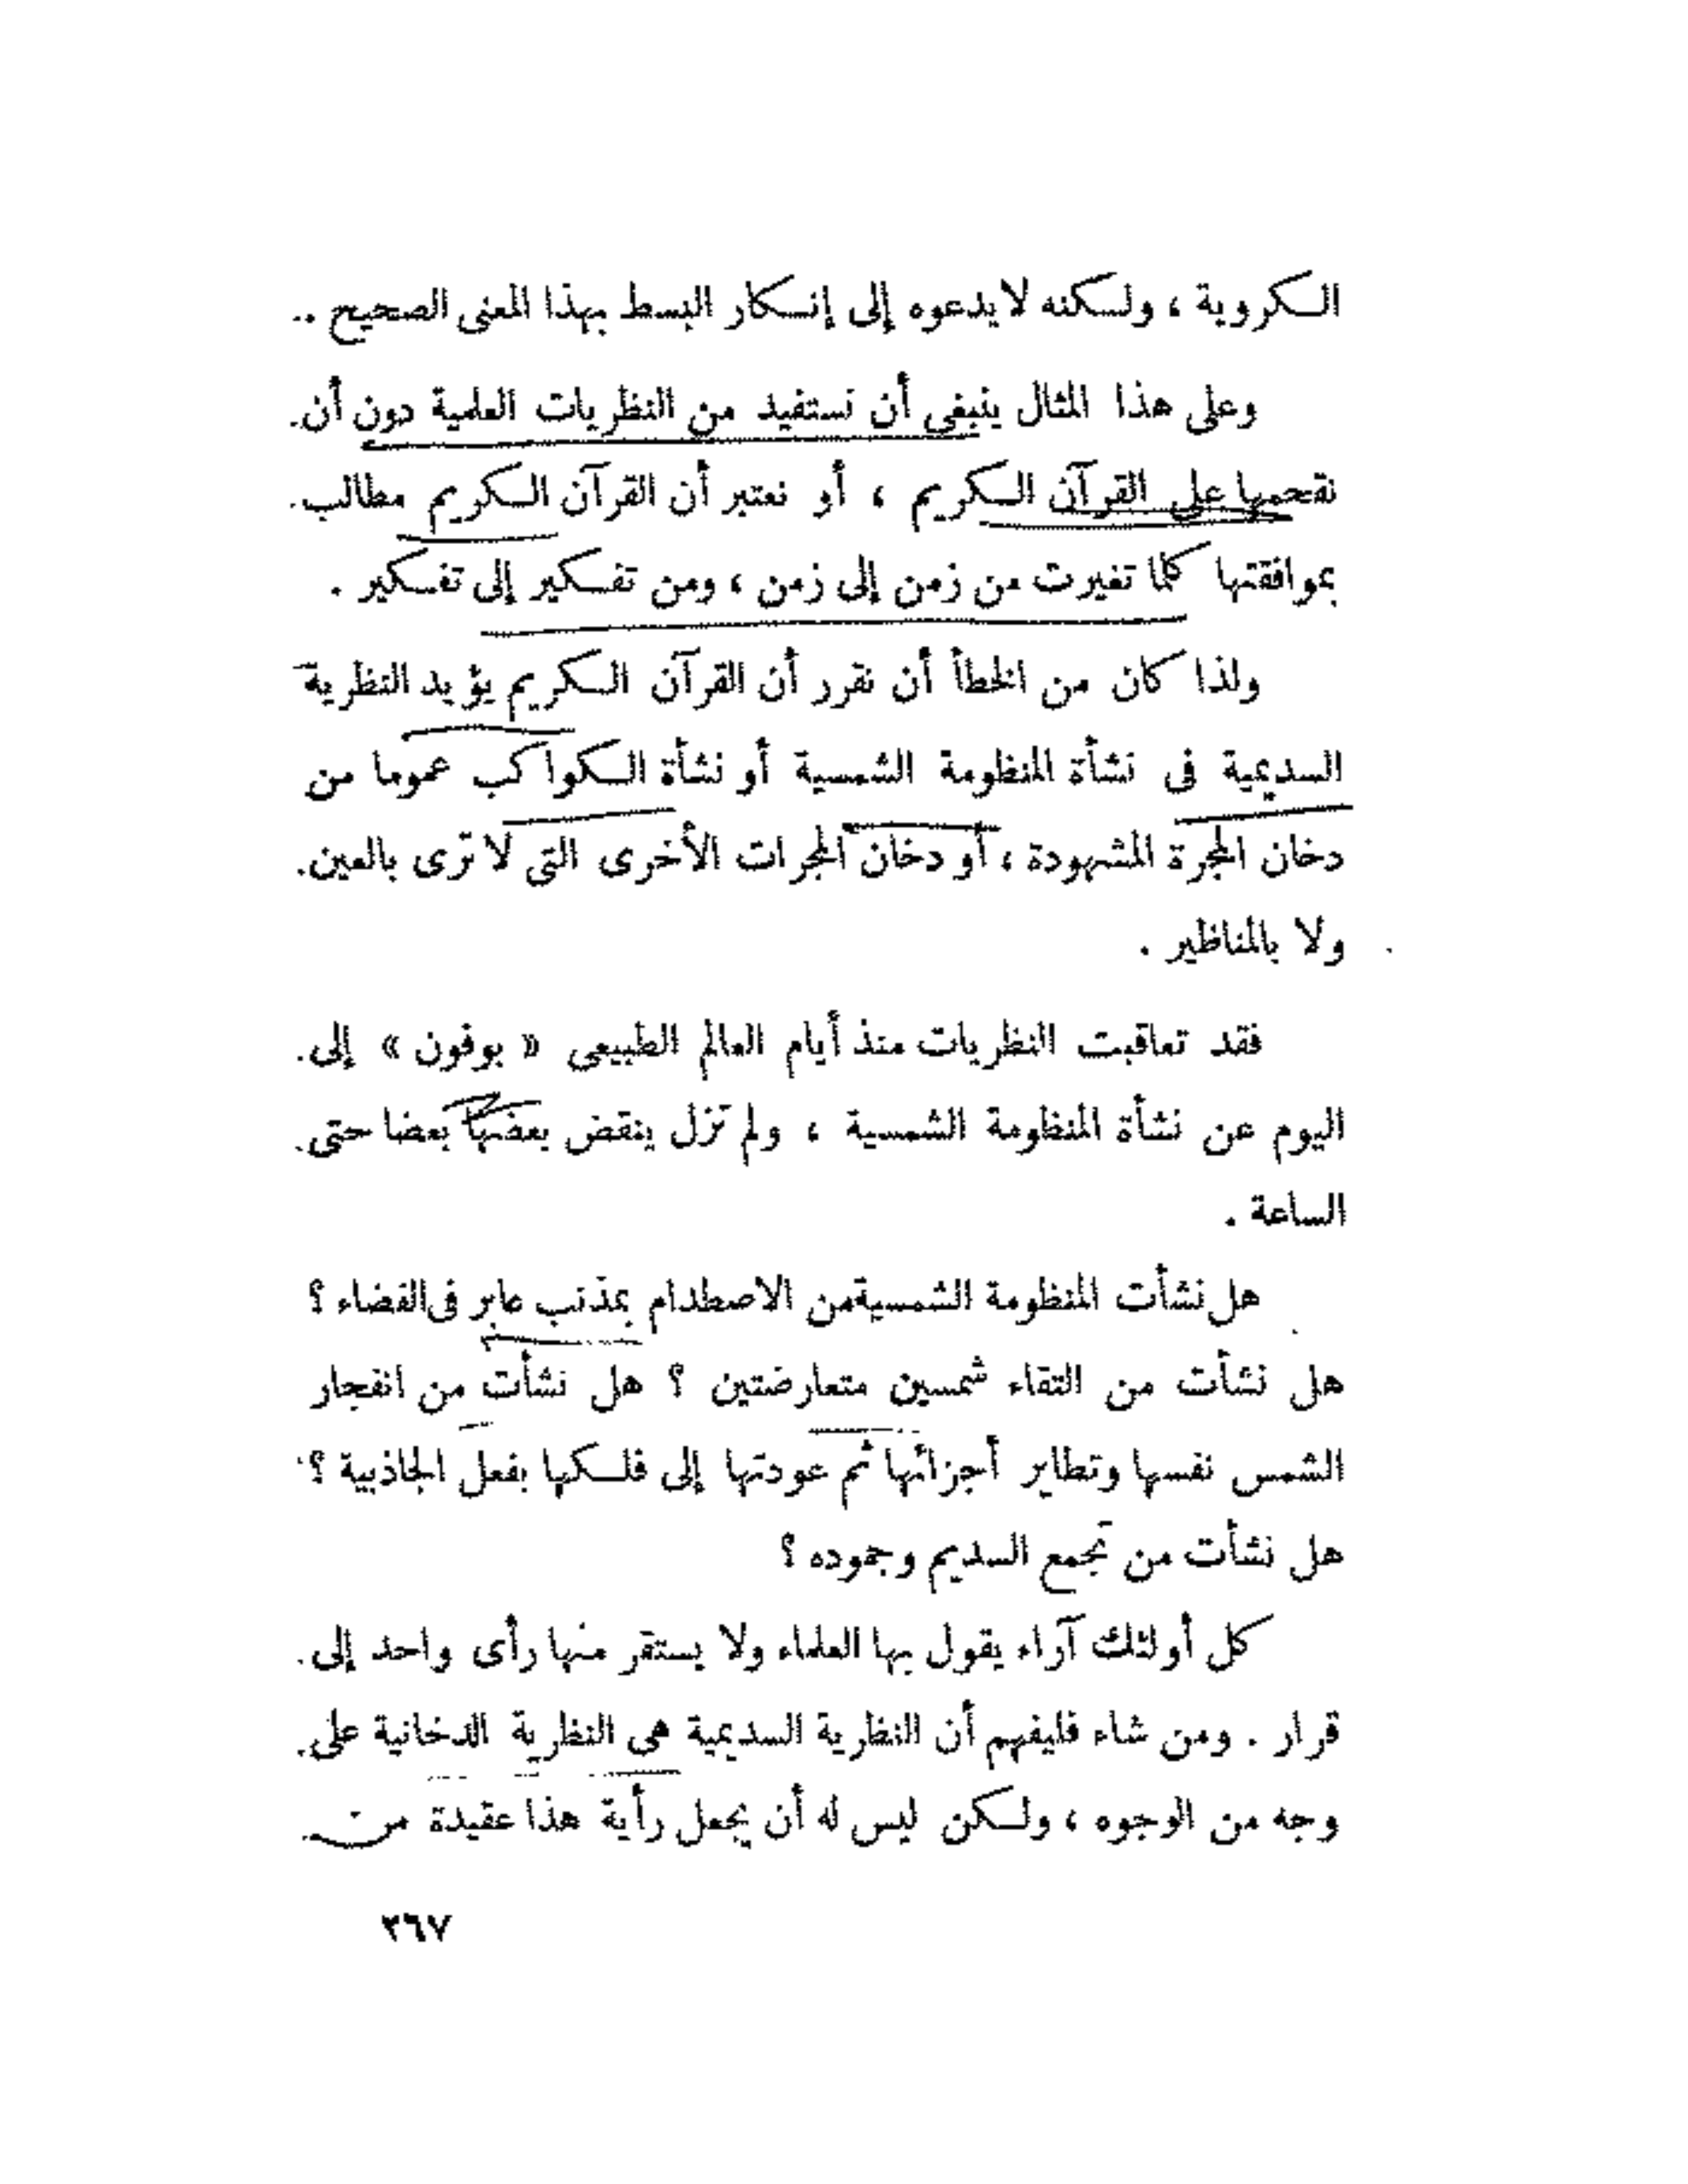 الكروية ، ولكنه لا يدعوه إلى إنكار البسط بهذا المعنى الصحيح ..
وعلى هذا المثال ينبغى أن نستفيد من النظريات العلمية دون أن
نقحمها على القرآن الكريم ، أو نعتبر أن القرآن الكريم مطالب
بموافقتها كلما تغيرت من زمن إلى زمن ، ومن تفكير إلى تفكير .
ولذا كان من الخطأ أن نقرر أن القرآن الكريم يؤيد النظرية
السديمية فى نشأة المنظومة الشمسية أو نشأة الكواكب عموما من
دخان المجرة المشهودة ، أو دخان المجرات الأخرى التى لا ترى بالعين
ولا بالمناظير .
فقد تعاقبت النظريات منذ أيام العالم الطبيعى « بوفون » إلى
اليوم عن نشأة المنظومة الشمسية ، ولم تزل ينقض بعضها بعضا حتى
الساعة .
هل نشأت المنظومة الشمسية من الاصطدام بمذنب عابر فى الفضاء ؟
هل نشأت من التقاء شمسين متعارضتين ؟ هل نشأت من انفجار
الشمس نفسها وتطاير أجزائها ثم عودتها إلى فلكها بفعل الجاذبية ؟
هل نشأت من تجمع السديم وجموده ؟
كل أولئك آراء يقول بها العلماء ولا يستقر منها رأى واحد إلى
قرار . ومن شاء فليفهم أن النظرية السديمية هى النظرية الدخانية على
وجه من الوجوه ، ولكن ليس له أن يجعل رأية هذا عقيدة من
٢٦٧